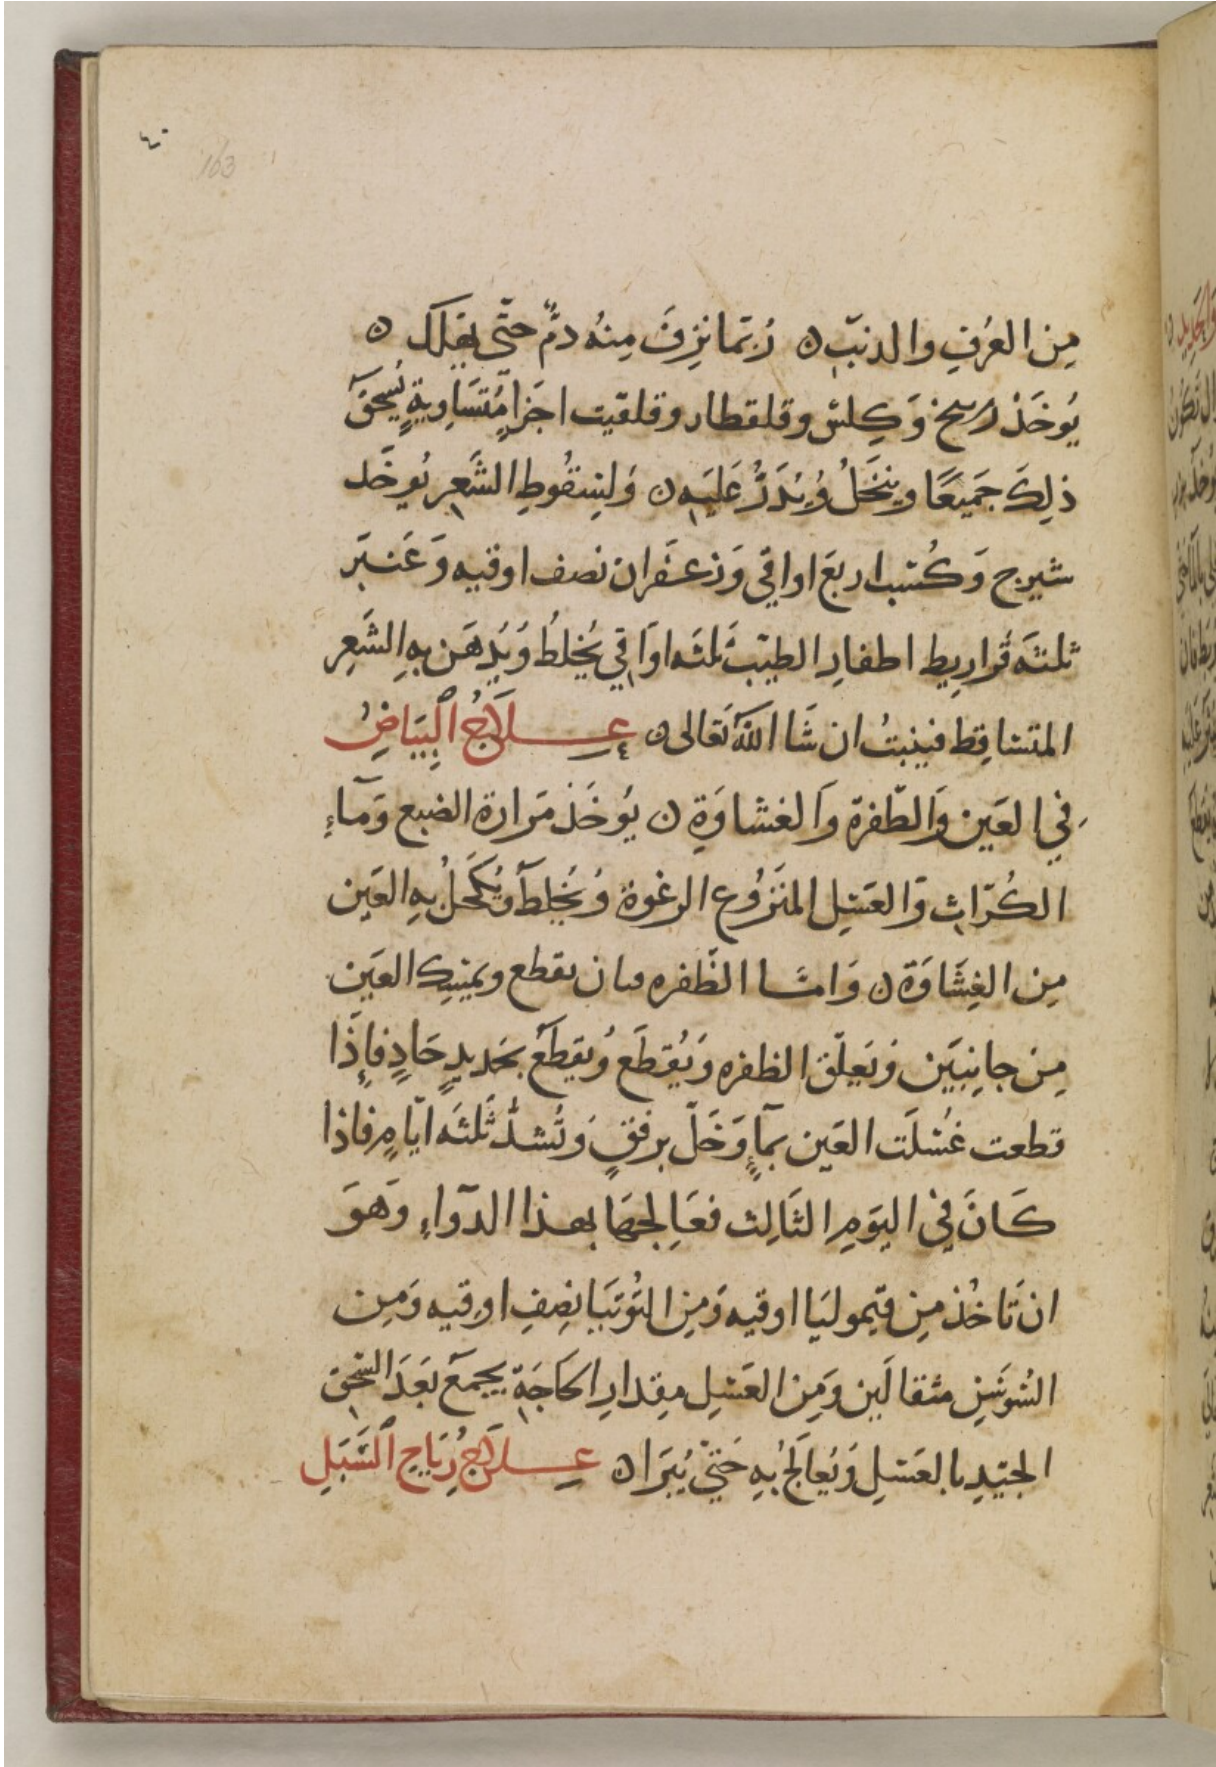 ٤٠
163
مِن العُرفِ والدنبِ ن رُبّمَا نزِفَ مِنهُ دمٌ حتّى يهَلَك ن
يُوخَذ راسخ وَكِلس وقلقطار وقلقيت اجزآءٍ مُتسَاويةٍ يُسحقَ
ذلِكَ جَميعًا وينخَلُ وَيُذَرُّ عَليَهِ ن وَلِسقُوطِ الشَعِر يُوخَذ
شيرج وَكُتب اربعَ اواقي وَزعفَران نصف اوقيه وَعَنبَر
ثلثَه قَراريط اظفارِ الطيبَ ثلثَه اوَاقِي يُخلطُ وَيُدهَن بهِ الشَعِر
المتساقِط فينبتُ ان شَا اللهُ تَعَالى ن عِلَاجُ البِيَاضِ
فِي العَين وَالظّفرة وَالغشاوَةِ ن يُوخَذ مَرارة الضبع وَمآءِ
الكُرّاثِ وَالعَسِل المنَزُوع الرغوة وَيُخلطَ وَيُكحَلُ بهِ العَين
مِن الغِشَاوَة ن وَامّا الظّفره فان تقطع ويمسِك العَين
مِن جانِبَين وَتعَلّق الظفره وَيُقطَع وُيقطَع بحَديدٍ حَادٍ فإِذَا
قطعت غُسلَت العَين بمآءٍ وَخَلّ برفقٍ وَتُشدّ ثَلثَه ايّامٍ فاذا
كَانَ فِي اليَومِ الثَالِث فعَالِجهَا بهذا الدوآءِ وَهَوَ
ان تَاخُذ مِن قيمولَيَا اوقيه وَمِن التُوتيَا نِصِفِ اوقيه وَمِن
السُوسَنِ مثقالَين وَمِن العَسِل مِقدارِ الحَاجَةِ يجمعَ بَعَدَ السَحِق
الجيّدِ بالعَسِل وَيُعَالَجُ بهِ حَتّي يُبَرَا ن عِلَاجُ رِيَاحِ السَّبَلِ